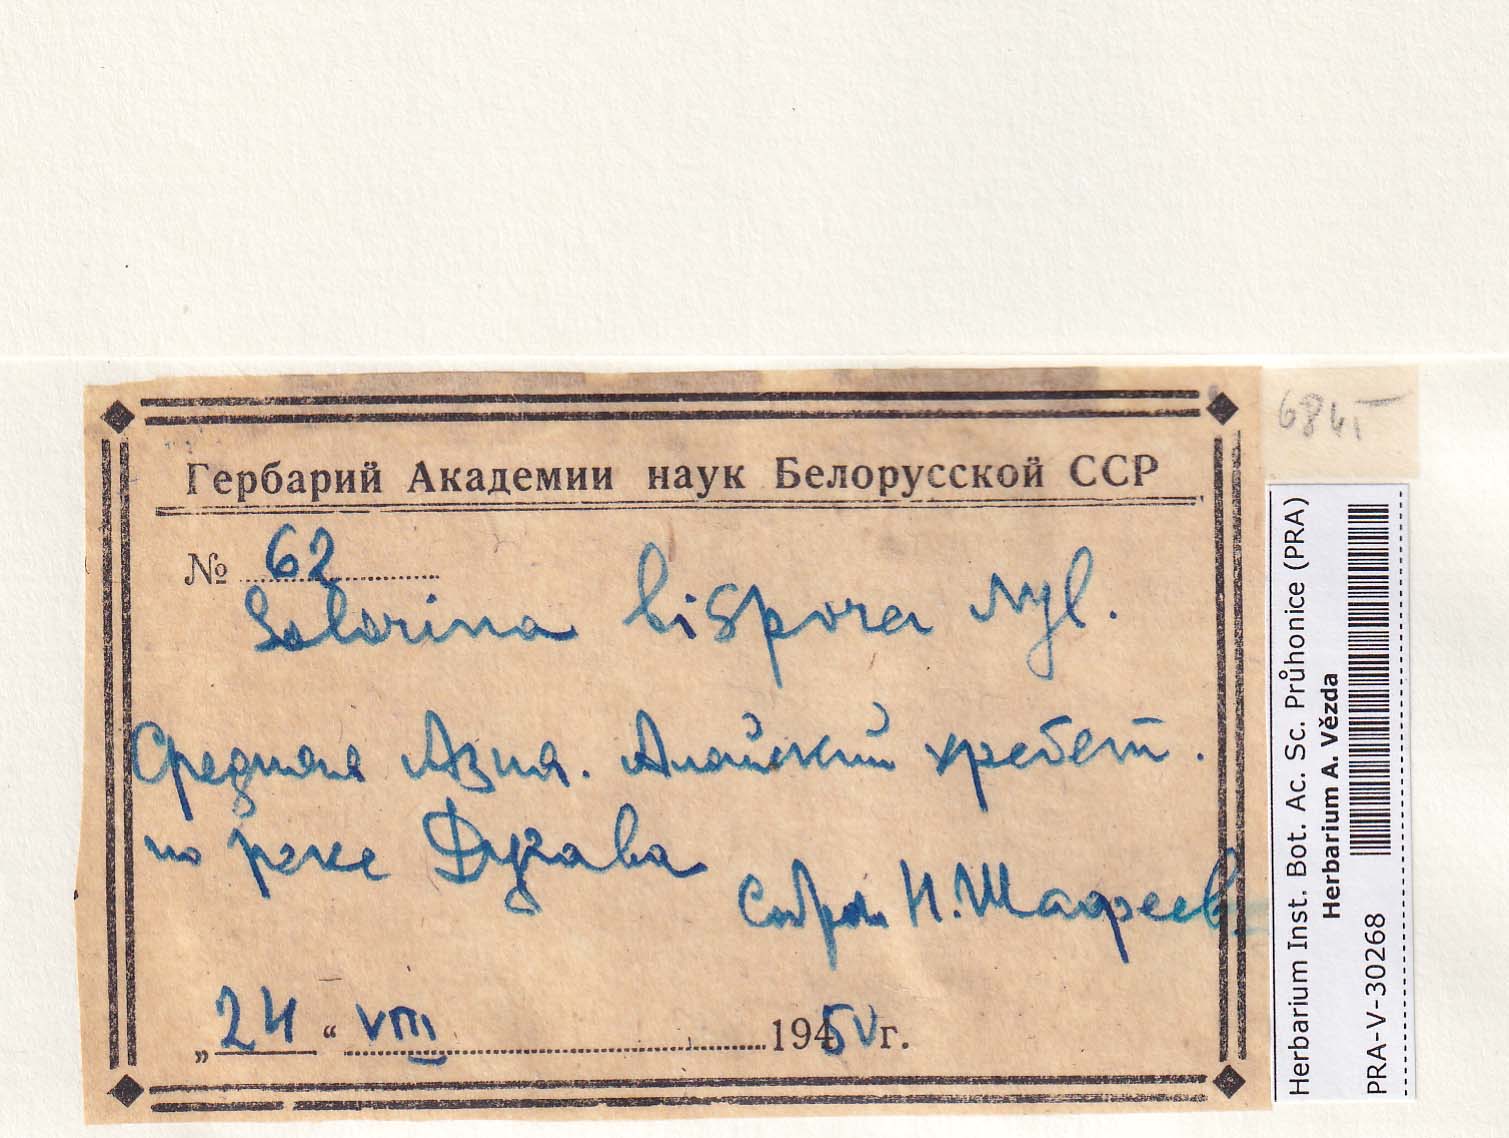 Гербарий Академии наук Белорусской ССР
№ 62
Solorina bispora Nyl.
Средняя Азия. Алайский хребет.
по реке Дугаба
Собрал Н. Шафеев.
„24“ VIII 1950 г.
6845
Herbarium Inst. Bot. Ac. Sc. Průhonice (PRA)
Herbarium A. Vězda
PRA-V-30268